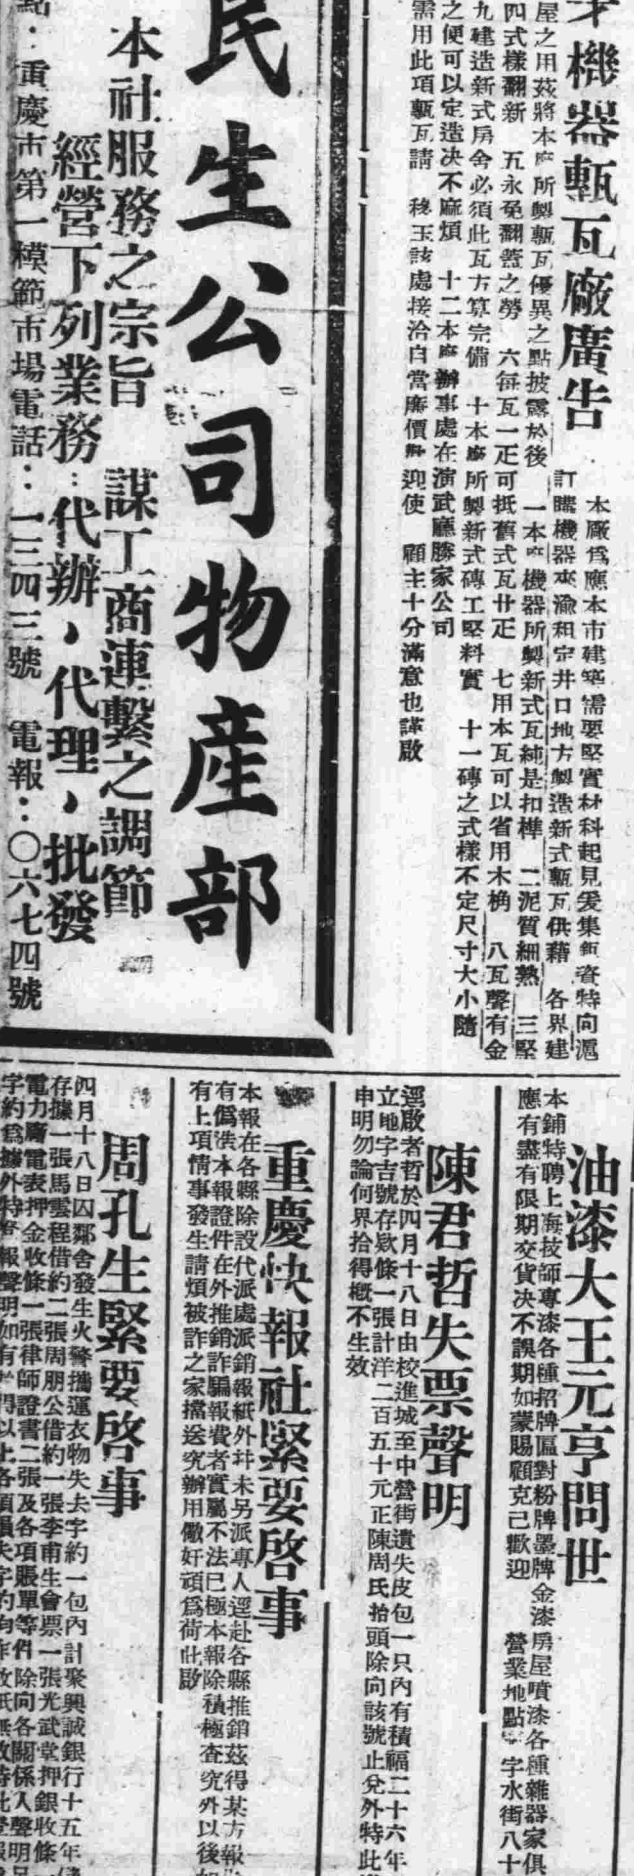 機器甎瓦廠廣告
本廠爲應本市建築需要堅實材料起見爰集鉅資特向滬
訂購機器來渝租定井口地方製造新式甎瓦供藉 各界建
屋之用茲將本廠所製甎瓦優異之點披露於後 一本廠機器所製新式瓦純是扣榫 二泥質細熟 三堅
四式樣翻新 五永免翻蓋之勞 六每瓦一疋可抵舊式瓦廿疋 七用本瓦可以省用木桷 八瓦聲有金
九建造新式房舍必須此瓦方算完備 十本廠所製新式磚工堅料實 十一磚之式樣不定尺寸大小隨
之便可以定造决不麻煩 十二本廠辦事處在演武廳勝家公司
需用此項甎瓦請 移玉該處接洽自當廉價歡迎使 顧主十分滿意也謹啟
民生公司物產部
本社服務之宗旨 謀工商連繫之調節
經營下列業務:代辦,代理,批發
點:重慶市第一模範市場電話:一三四三號 電報:〇六七四號
油漆大王元亨問世
本鋪特聘上海技師專漆各種招牌匾對粉牌墨牌金漆房屋噴漆各種雜器家俱
應有盡有限期交貨决不誤期如蒙賜顧克己歡迎 營業地點 字水街八十
陳君哲失票聲明
逕啟者哲於四月十八日由校進城至中營街遺失皮包一只內有積福二十六年
立地字吉號存欵條一張計洋二百五十元正陳周氏抬頭除向該號止兌外特此
申明勿論何界拾得槪不生效
重慶快報社緊要啓事
本報在各縣除設代派處派銷報紙外幷未另派專人逕赴各縣推銷茲得某方報
有僞造本報證件在外推銷詐騙報費者實屬不法已極本報除積極查究外以後如
有上項情事發生請煩被詐之家擋送究辦用儆奸頑爲荷此啟
周孔生緊要啓事
四月十八日因鄰舍發生火警搬運衣物失去字約一包內計聚興誠銀行十五年
存據一張馬雲程借約二張周朋公借約一張李甫生會票一張光武堂押銀收條
電力廠電表押金收條一張律師證書二張及各項賬單等件除向各關係人聲明
字約爲據外特登報聲明如有 得以上各項損失字約